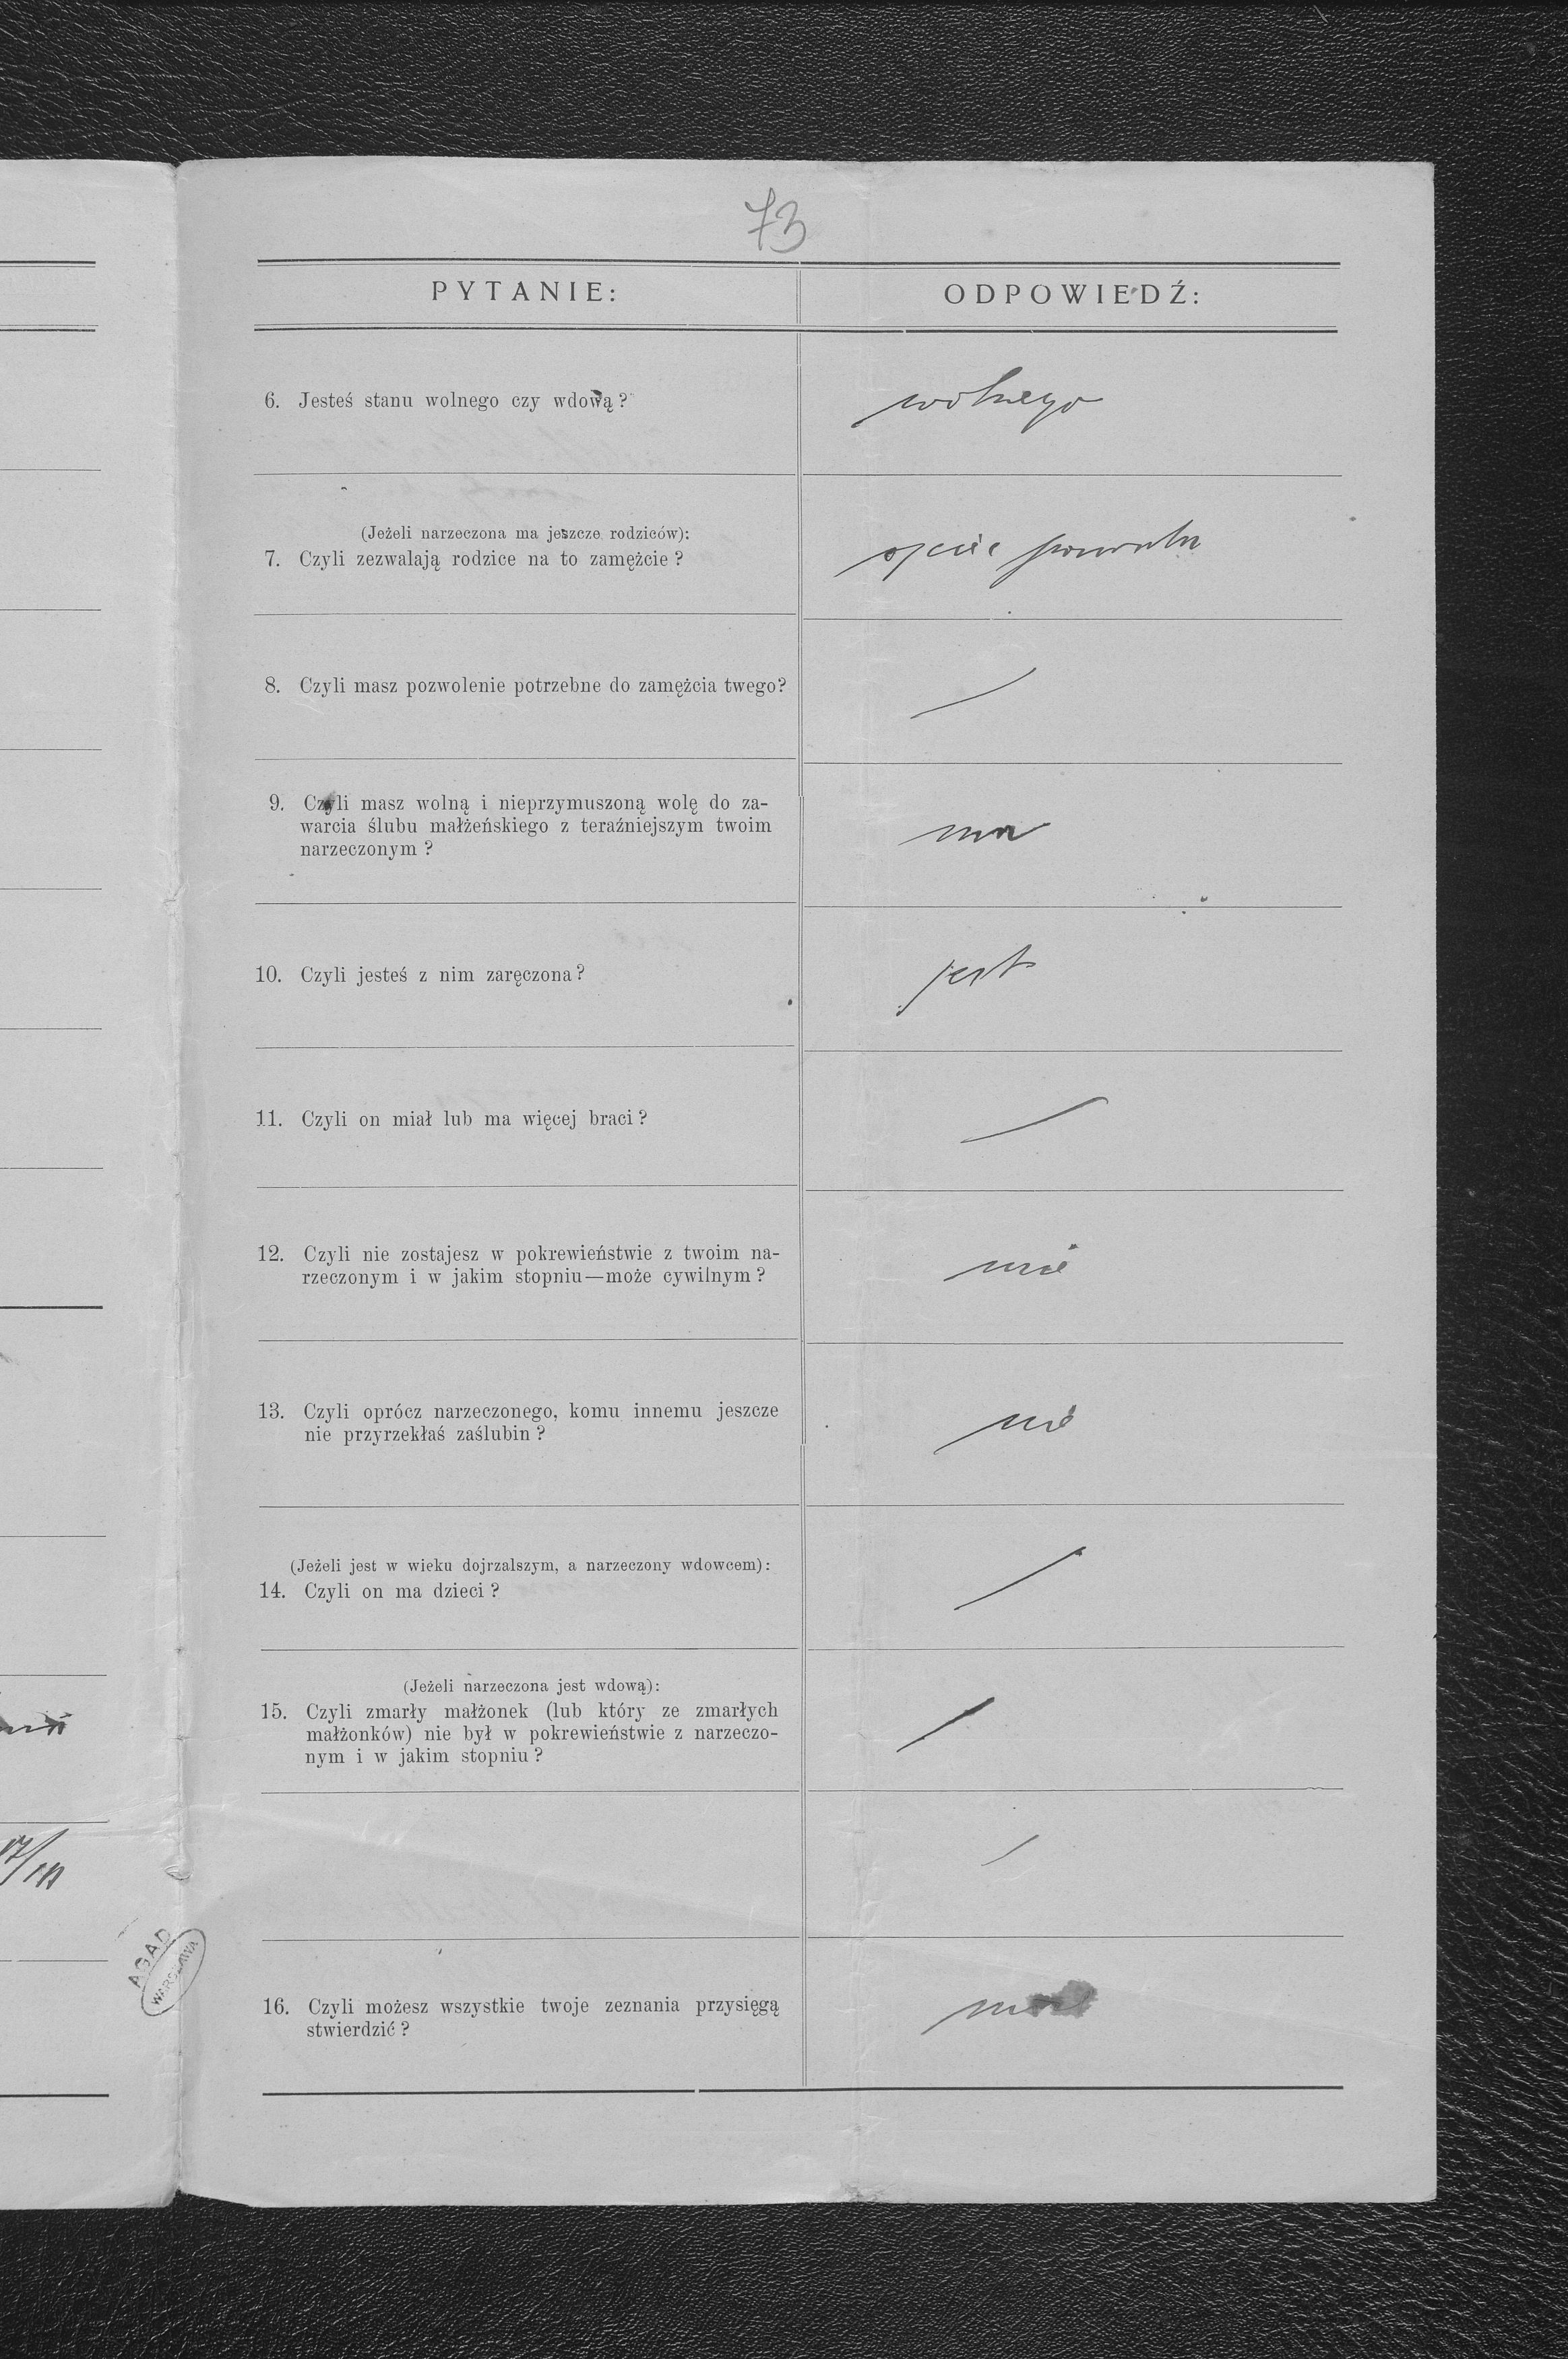 73
PYTANIE:
ODPOWIEDŹ:
6. Jesteś stanu wolnego czy wdową?
wolnego
(Jeżeli narzeczona ma jeszcze rodziców):
7. Czyli zezwalają rodzice na to zamężcie?
ojciec pozwala
8. Czyli masz pozwolenie potrzebne do zamężcia twego?
9. Czyli masz wolną i nieprzymuszoną wolę do za-
warcia ślubu małżeńskiego z teraźniejszym twoim
narzeczonym?
ma
10. Czyli jesteś z nim zaręczona?
jest
11. Czyli on miał lub ma więcej braci?
12. Czyli nie zostajesz w pokrewieństwie z twoim na-
rzeczonym i w jakim stopniu—może cywilnym?
nie
13. Czyli oprócz narzeczonego, komu innemu jeszcze
nie przyrzekłaś zaślubin?
nie
(Jeżeli jest w wieku dojrzalszym, a narzeczony wdowcem):
14. Czyli on ma dzieci?
(Jeżeli narzeczona jest wdową):
15. Czyli zmarły małżonek (lub który ze zmarłych
małżonków) nie był w pokrewieństwie z narzeczo-
nym i w jakim stopniu?
16. Czyli możesz wszystkie twoje zeznania przysięgą
stwierdzić?
AGAD
WARSZAWA